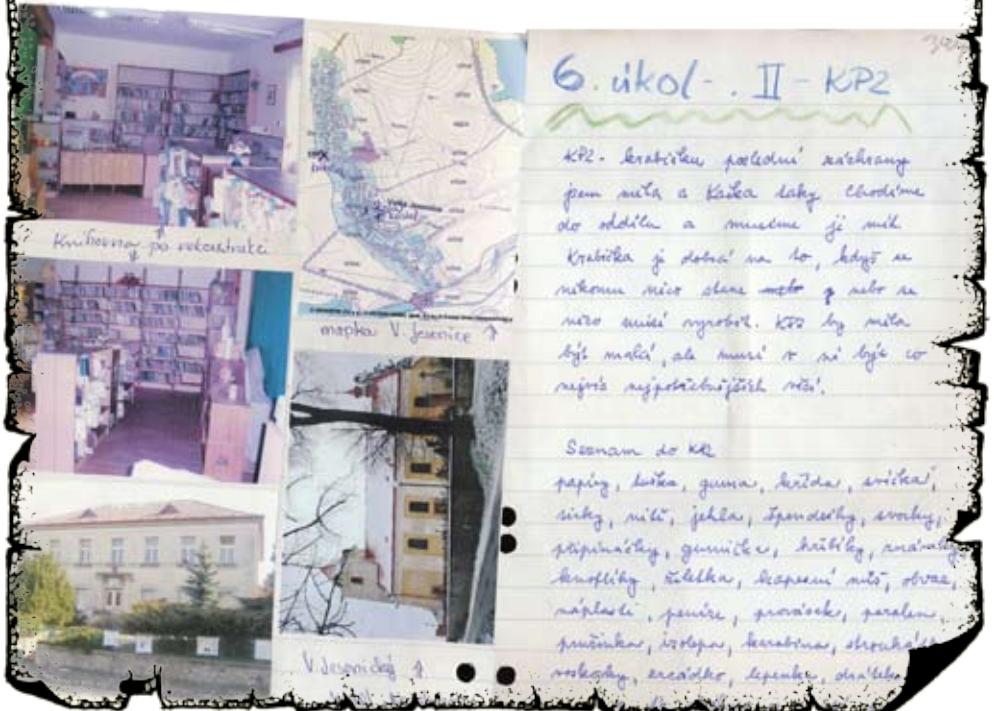 Knihovna po rekonstrukci
mapka V. Jesenice
V. Jesenický
6. úkol - . II - KPZ
KPZ - krabičku poslední záchrany
jsem měla a Kačka taky. Chodíme
do oddílu a musíme ji mít
Krabička je dobrá na to, když se
někomu něco stane nebo se
něco musí vyrobit. KPZ by měla
být malá, ale musí v ní být co
nejvíc nejpotřebnějších věcí.
Seznam do KPZ
papíry, tužka, guma, křída, svíčka,
sirky, nitě, jehla, špendlíky, svorky,
připínáčky, gumička, hřebíky,
knoflíky, žiletka, kapesní nůž, obvaz,
náplasti, peníze, provázek, paralen,
pružinka, izolepa, karabina,
voskovky, zrcádko, lepenka,